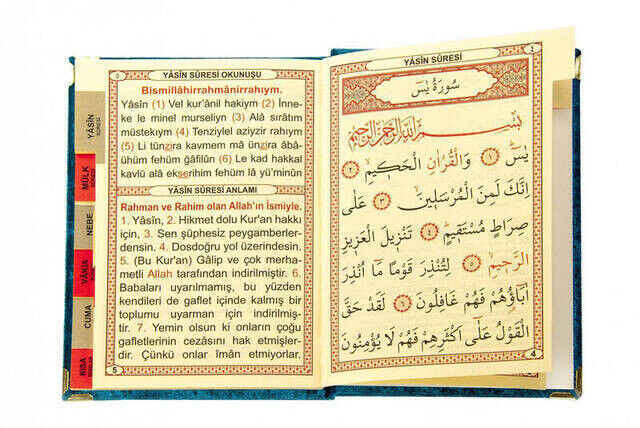 ٥
YÂSİN SÛRESİ OKUNUŞU
Bismillâhirrahmânirrahıym.
Yâsîn (1) Vel kur'ânil hakiym (2) İnne-
ke le minel murseliyn (3) Alâ sırâtım
müstekıym (4) Tenziylel aziyzir rahıym
(5) Li tünzira kavmem mâ ünzira âbâ-
ühüm fehüm ğâfilûn (6) Le kad hakkal
kavlü alâ ekserihim fehüm lâ yü'minûn
YÂSİN SÛRESİ ANLAMI
Rahman ve Rahim olan Allah'ın İsmiyle.
1. Yâsîn, 2. Hikmet dolu Kur'an hakkı
için, 3. Sen şüphesiz peygamberler-
densin. 4. Dosdoğru yol üzerindesin.
5. (Bu Kur'an) Gâlip ve çok merha-
metli Allah tarafından indirilmiştir. 6.
Babaları uyarılmamış, bu yüzden
kendileri de gaflet içinde kalmış bir
toplumu uyarman için indirilmiş-
tir. 7. Yemin olsun ki onların çoğu
gafletlerinin cezasını hak etmişler-
dir. Çünkü onlar îmân etmiyorlar.
5
YÂSİN
SÛRESİ
MÜLK
SÛRESİ
NEBE
VÂKIA
CUMA
KISA
YÂSİN SÛRESİ
٤
سُورَةُ يٰسٓ
بِسْمِ اللّٰهِ الرَّحْمٰنِ الرَّحِيمِ
يٰسٓ ﴿١﴾ وَالْقُرْاٰنِ الْحَكِيمِ ﴿٢﴾
اِنَّكَ لَمِنَ الْمُرْسَلِينَ ﴿٣﴾ عَلٰى
صِرَاطٍ مُسْتَقِيمٍ ﴿٤﴾ تَنْزِيلَ الْعَزِيزِ
الرَّحِيمِ ﴿٥﴾ لِتُنْذِرَ قَوْمًا مَٓا اُنْذِرَ
اٰبَٓاؤُهُمْ فَهُمْ غَافِلُونَ ﴿٦﴾ لَقَدْ حَقَّ
الْقَوْلُ عَلٰٓى اَكْثَرِهِمْ فَهُمْ لَا يُؤْمِنُونَ
4